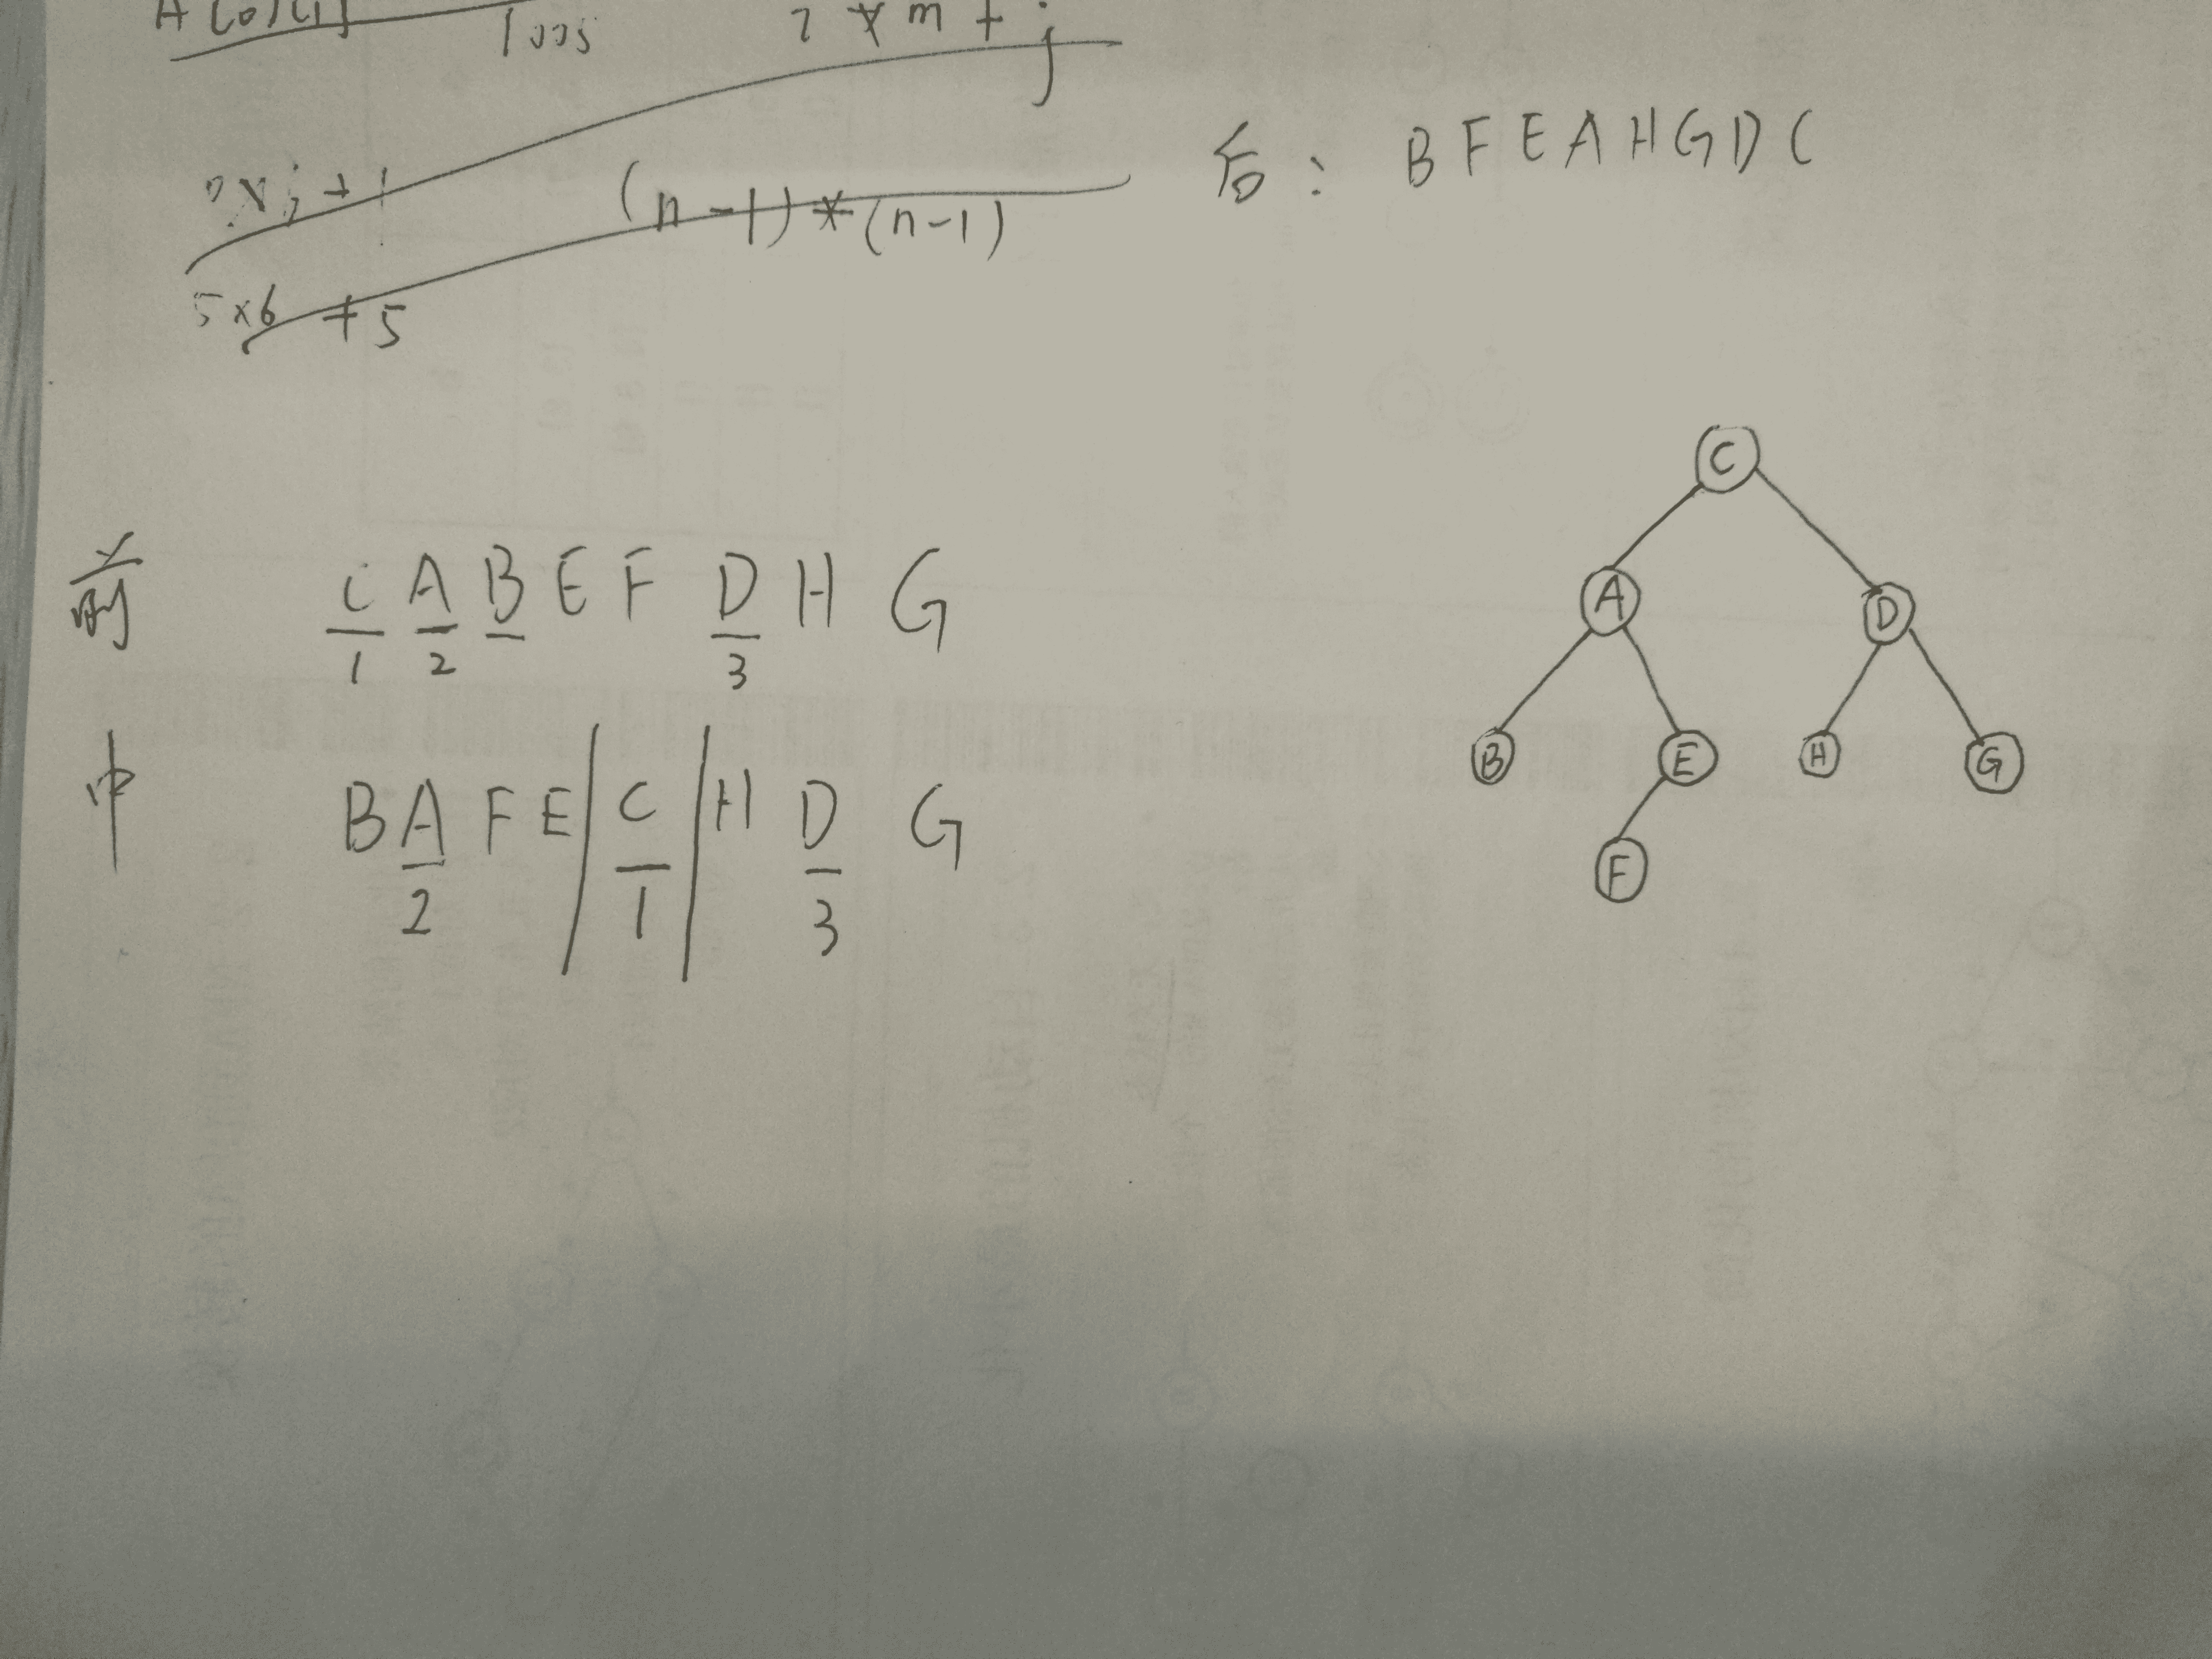 1005
(n-1)*(n-1)
5×6 +5
后: B F E A H G D C
前 C A B E F D H G
1 2 3
中 B A F E / C / H D G
2 1 3
C
A D
B E H G
F